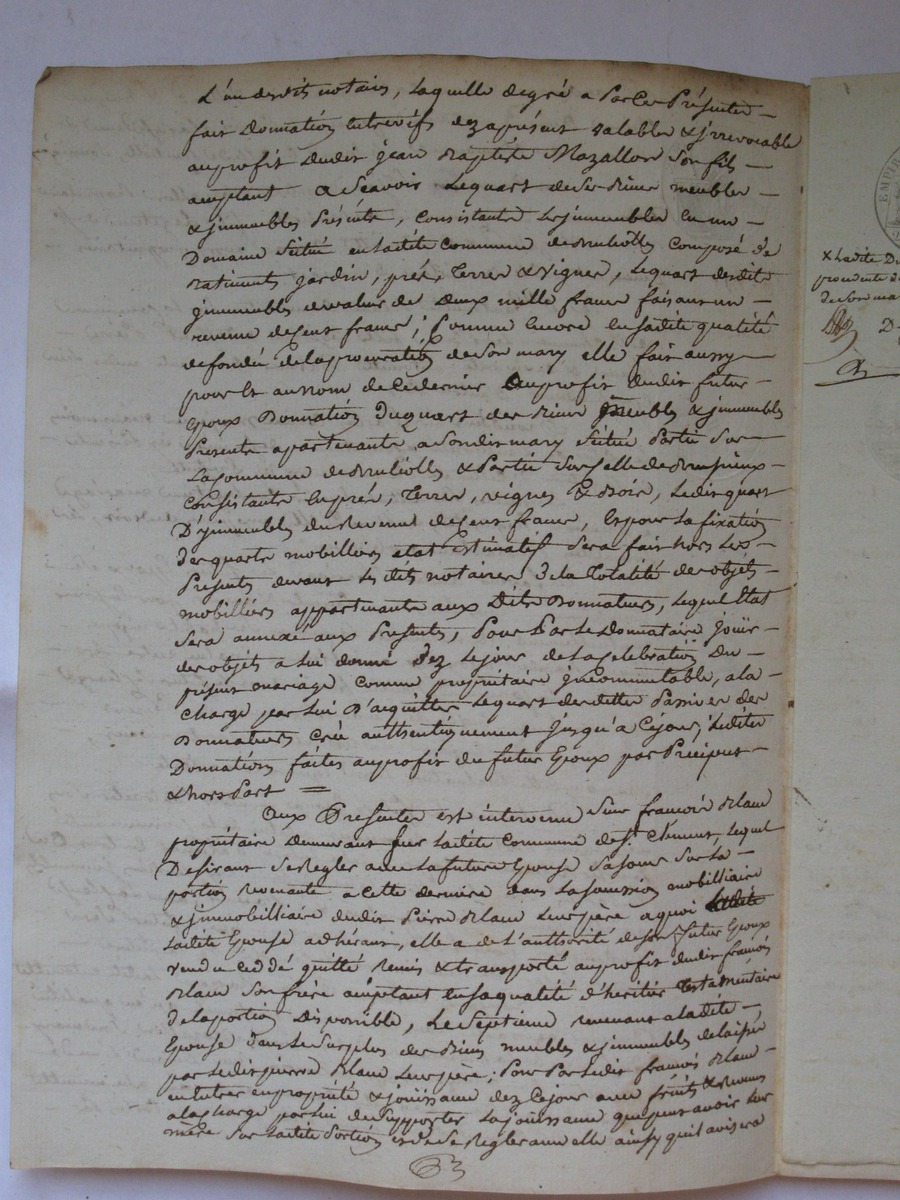 L'un desdits notaires, laquelle de gré a Par Ces Présentes
fait Donnation Entrevifs dez aprésent valable & jrrevocable
au profit dudit jean Baptiste Mazallon Son fils
acceptant a Scavoir Le quart de Ses Biens meubles
& jmmeubles Présents, Consistants Les jmmeubles en un
Domaine Situé en Ladite Commune de composé de
Batiments jardin, prés, Terres & Vignes, Le quart desdits
jmmeubles de valeur de Deux mille francs faisant un
revenu de Cent francs; Comme Encore En Sadite qualité
de fondée de la procuration de Son mary elle fait aussy
pour Et au nom de Ce dernier Au profit dudit futur
Epoux Donnation du quart des Biens Meubles & jmmeubles
Presents apartenants a Sondit mary Situés Partie Sur
La Commune de & Partie Sur Celle de
Consistants En prés, Terres, vignes Et Bois, Ledit quart
D'jmmeubles du Revenu de Cent francs, Et pour La fixation
des quarts mobilliers etat Estimatif Sera fait hors Les
Presents devant Les dits notaires De la Totalité des objets
mobilliers appartenants aux Dits Donnateurs, Lequel Etat
Sera annexé aux Presents, Pour Par Le Donnataire jouir
des objets a Lui donné dez Le jour de La Celebration Du
présent mariage comme propriétaire jncommutable, a la
Charge par Lui D'acquitter Le quart des dettes Passives des
Donnateurs Créé authentiquement jusqu'a Cejour; Lesdites
Donnations faites au profit du futur Epoux par Préciput
& hors Part =
Aux Presentes est intervenu Sieur francois Blanc
propriétaire demeurant Sur Ladite Commune de St. Clément, Lequel
Désirant Se Regler avec La future Epouse Sa Soeur Sur La
portion Revenante a Cette derniere dans La Succession mobilliaire
& jmmobilliaire dudit Pierre Blanc Leur père a quoi
Ladite Epouse adhérant, elle a de L'authorité de Son futur Epoux
vendu ceddé quitté Remis & transporté au profit dudit francois
Blanc Son frère acceptant En Sa qualité d'héritier Testamentaire
De la portion Disponible, Le Septieme revenant a Ladite
Epouse dans Le Surplus des Biens meubles & jmmeubles delaissés
par Ledit pierre Blanc Leur père; Pour Par Ledit francois Blanc
en entrer en propriété & jouissance dez Cejour avec fruits & Revenus
a La Charge par Lui de Supporter La jouissance que peut avoir Sa
mère Sur Ladite Portion et de Se Regler avec elle ainsy qu'il avisera
EMPIRE
x Ladite D
procu
de Son ma
D